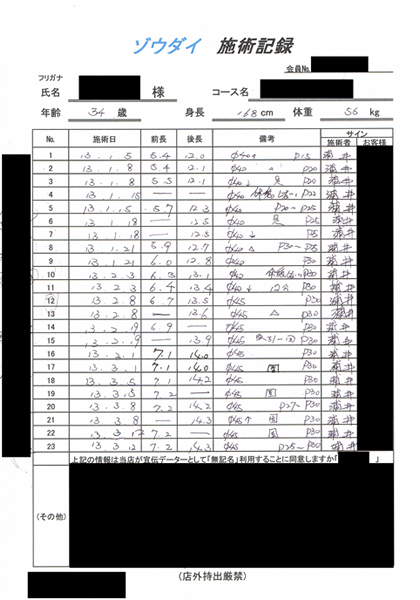 ゾウダイ 施術記録
会員No.
フリガナ
氏名 様 コース名
年齢 34 歳 身長 168 cm 体重 56 kg
No. 施術日 前長 後長 備考 サイン
施術者 お客様
1 13.1.5 5.4 12.0 φ40 P15 酒井
2 13.1.8 5.4 12.1 φ40 P20 酒井
3 13.1.8 5.5 12.1 φ40↓ P20 酒井
4 13.1.15 — — φ40 P22 酒井
5 13.1.15 5.7 12.3 φ40 P20~P25 酒井
6 13.1.18 — 12.5 φ40 P25 酒井
7 13.1.18 — 12.5 φ40↓ P25 酒井
8 13.1.21 5.9 12.7 φ40 △ P30~P25 酒井
9 13.1.21 6.0 12.8 φ40 P30 酒井
10 13.2.3 6.3 13.1 φ40 P30 酒井
11 13.2.3 6.4 13.4 φ40↓ 12分 P30 酒井
12 13.2.8 6.7 13.5 φ45 P30 酒井
13 13.2.8 — 13.6 φ45 △ P30 酒井
14 13.2.19 6.9 — φ45 P30 酒井
15 13.2.19 — 13.9 φ45 P30 酒井
16 13.2.1 7.1 14.0 φ45 P30 酒井
17 13.3.1 7.1 14.0 φ45 P30 酒井
18 13.3.5 7.1 14.2 φ45 P30 酒井
19 13.3.5 7.2 — φ45 P30 酒井
20 13.3.8 7.2 14.2 φ45 P27~P30 酒井
21 13.3.8 — 14.3 φ45↑ P30 酒井
22 13.3.12 7.2 — φ45 P30 酒井
23 13.3.12 7.2 14.3 φ45 P25~P30 酒井
上記の情報は当店が宣伝データーとして「無記名」利用することに同意しますか「 」
(その他)
(店外持出厳禁)